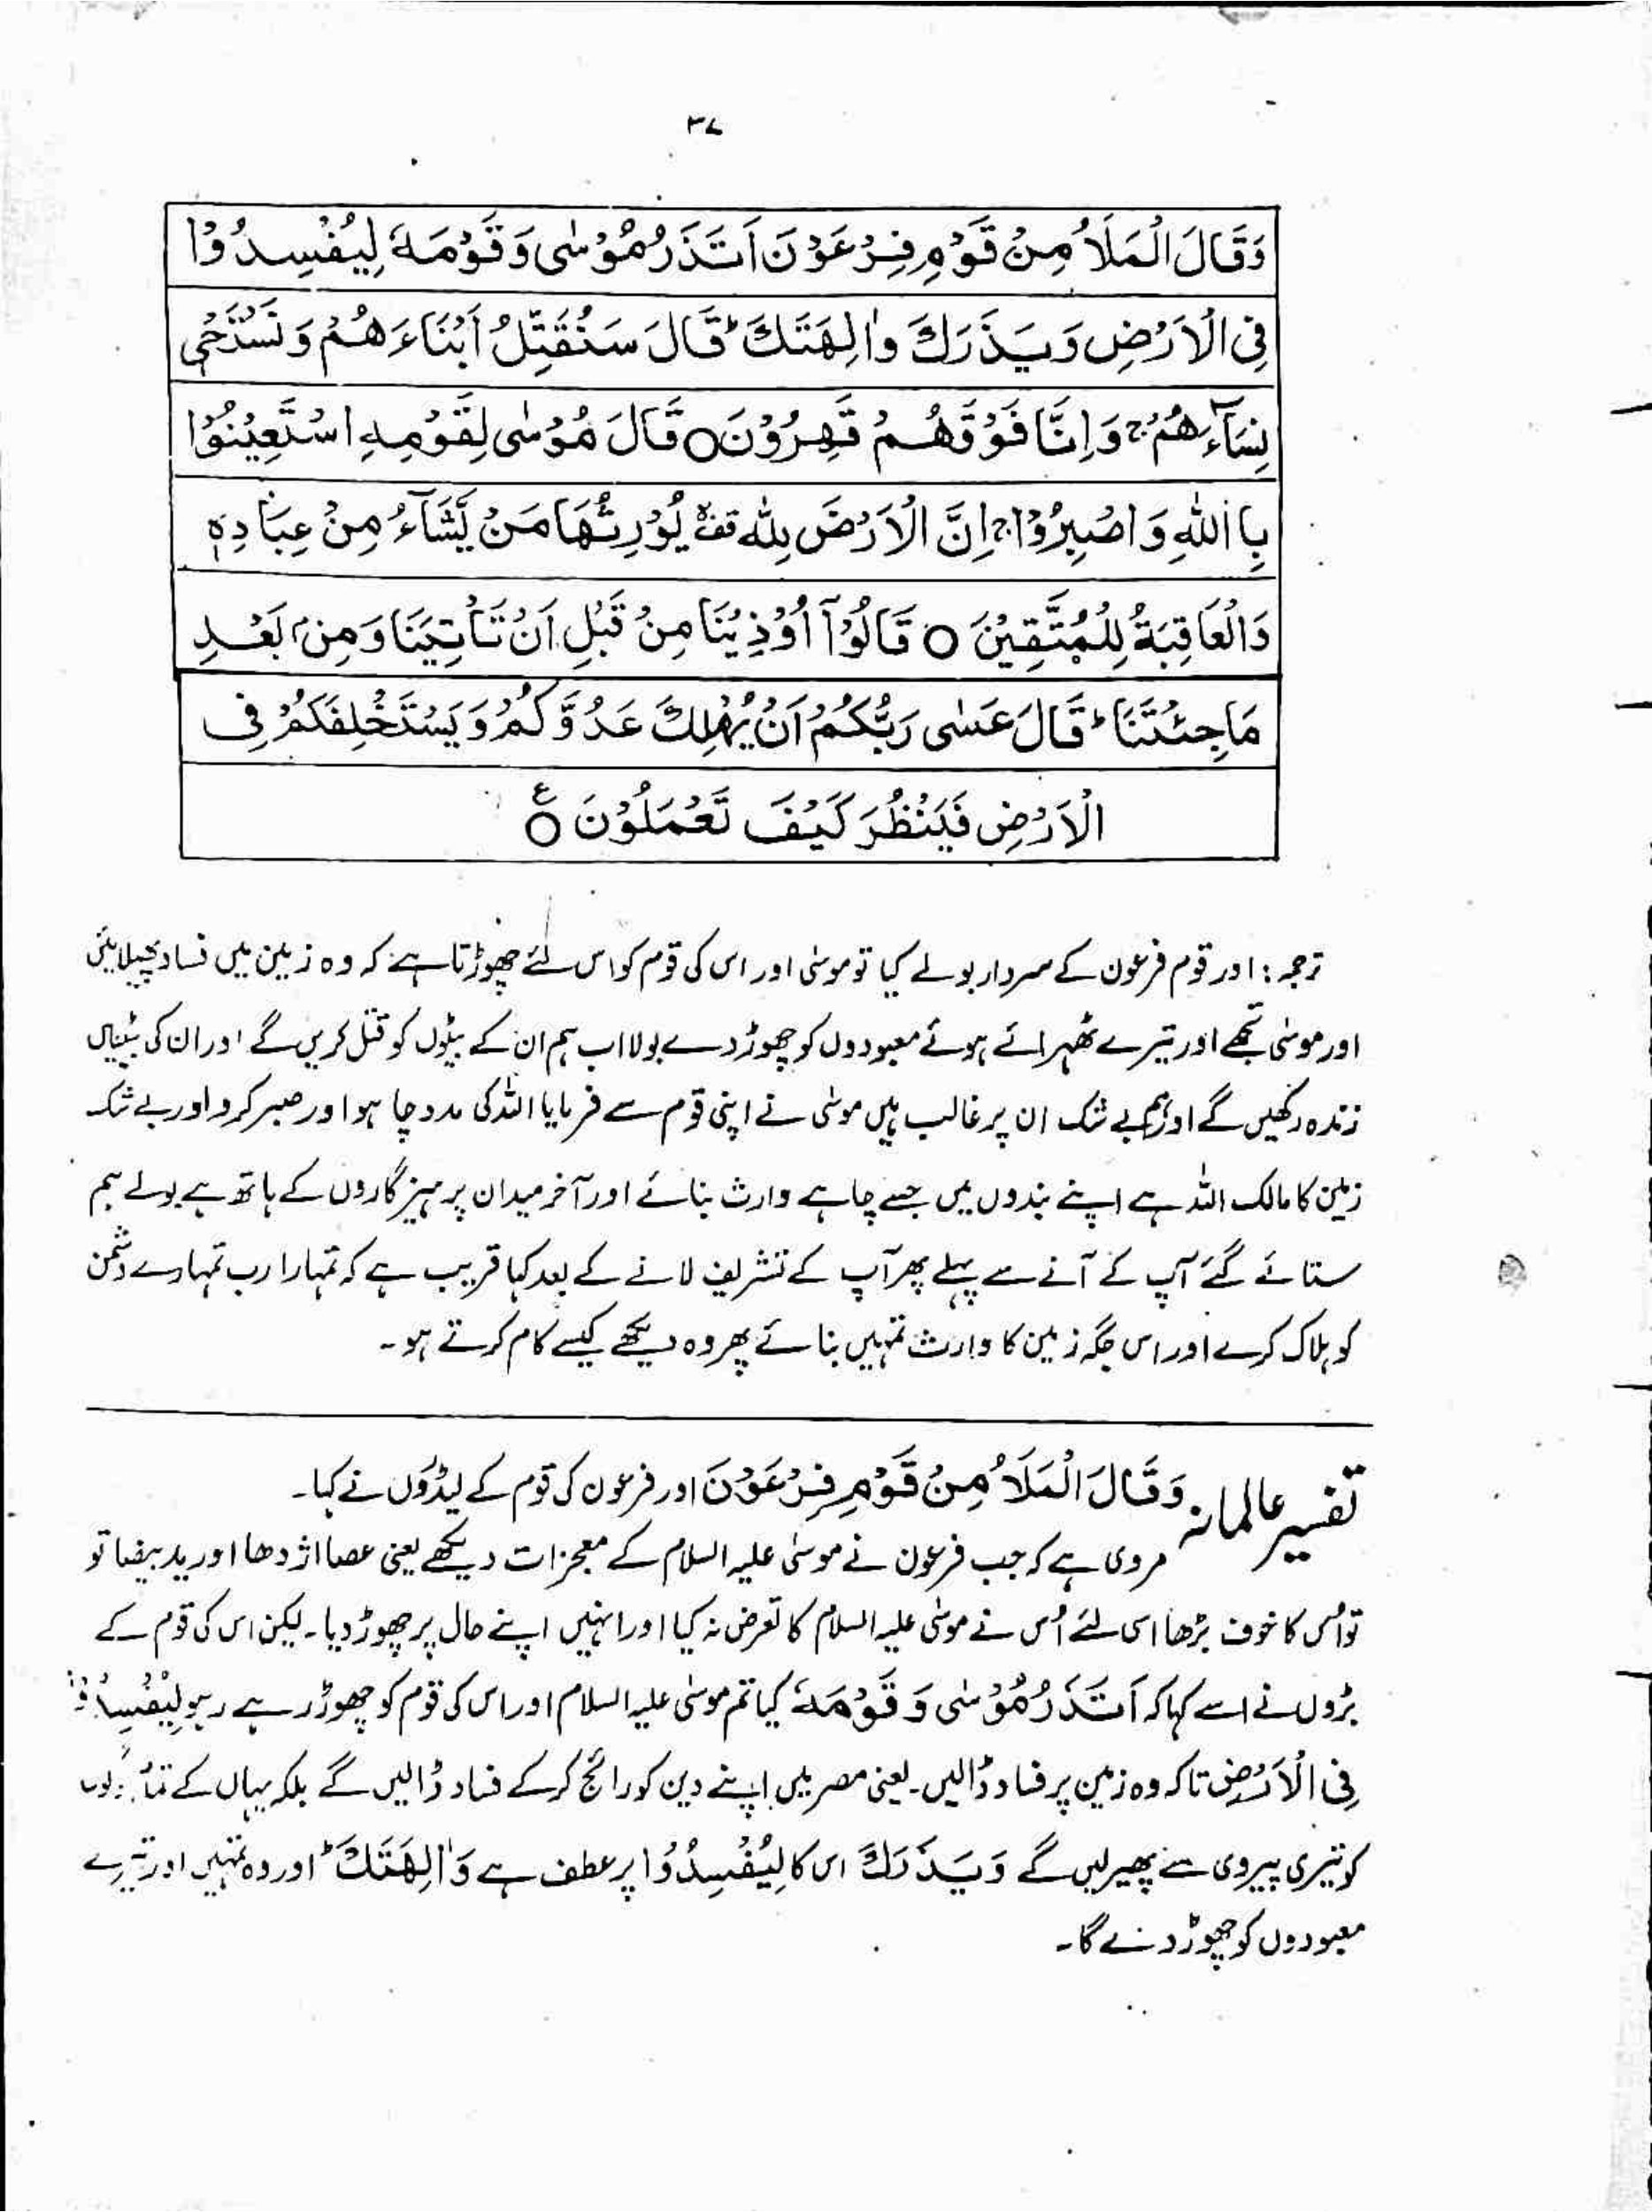 ۳۷
وَقَالَ الْمَلَاُ مِنْ قَوْمِ فِرْعَوْنَ اَتَذَرُ مُوْسٰى وَقَوْمَهٗ لِيُفْسِدُوْا
فِى الْاَرْضِ وَيَذَرَكَ وَاٰلِهَتَكَ ؕ قَالَ سَنُقَتِّلُ اَبْنَاءَهُمْ وَنَسْتَحْىٖ
نِسَآءَهُمْ ۚ وَاِنَّا فَوْقَهُمْ قٰهِرُوْنَ ○ قَالَ مُوْسٰى لِقَوْمِهِ اسْتَعِيْنُوْا
بِاللّٰهِ وَاصْبِرُوْا ۚ اِنَّ الْاَرْضَ لِلّٰهِ قف يُوْرِثُهَا مَنْ يَّشَآءُ مِنْ عِبَادِهٖ
وَالْعَاقِبَةُ لِلْمُتَّقِيْنَ ○ قَالُوْٓا اُوْذِيْنَا مِنْ قَبْلِ اَنْ تَاْتِيَنَا وَمِنْۢ بَعْدِ
مَا جِئْتَنَا ؕ قَالَ عَسٰى رَبُّكُمْ اَنْ يُّهْلِكَ عَدُوَّكُمْ وَيَسْتَخْلِفَكُمْ فِى
الْاَرْضِ فَيَنْظُرَ كَيْفَ تَعْمَلُوْنَ ○ ع
ترجمہ : اور قوم فرعون کے سردار بولے کیا تو موسٰی اور اس کی قوم کو اس لئے چھوڑتا ہے کہ وہ زمین میں فساد پھیلائیں
اور موسٰی تجھے اور تیرے ٹھہرائے ہوئے معبودوں کو چھوڑ دے بولا اب ہم ان کے بیٹوں کو قتل کریں گے اور ان کی بیٹیاں
زندہ رکھیں گے اور ہم بے شک ان پر غالب ہیں موسٰی نے اپنی قوم سے فرمایا اللہ کی مدد چاہو اور صبر کرو اور بے شک
زمین کا مالک اللہ ہے اپنے بندوں میں جسے چاہے وارث بنائے اور آخر میدان پرہیزگاروں کے ہاتھ ہے بولے ہم
ستائے گئے آپ کے آنے سے پہلے پھر آپ کے تشریف لانے کے بعد کہا قریب ہے کہ تمہارا رب تمہارے دشمن
کو ہلاک کرے اور اس جگہ زمین کا وارث تمہیں بنائے پھر وہ دیکھے کیسے کام کرتے ہو۔
تفسیر عالمانہ وَقَالَ الْمَلَاُ مِنْ قَوْمِ فِرْعَوْنَ اور فرعون کی قوم کے لیڈروں نے کہا۔
مروی ہے کہ جب فرعون نے موسٰی علیہ السلام کے معجزات دیکھے یعنی عصا اژدھا اور ید بیضا تو
تو اُس کا خوف بڑھا اسی لئے اُس نے موسٰی علیہ السلام کا تعرض نہ کیا اور انہیں اپنے حال پر چھوڑ دیا۔ لیکن اس کی قوم کے
بڑوں نے اسے کہا کہ اَتَذَرُ مُوْسٰى وَقَوْمَهٗ کیا تم موسٰی علیہ السلام اور اس کی قوم کو چھوڑ رہے ہو لِيُفْسِدُوْا
فِى الْاَرْضِ تاکہ وہ زمین پر فساد ڈالیں۔ یعنی مصر میں اپنے دین کو رائج کر کے فساد ڈالیں گے بلکہ یہاں کے
کو تیری پیروی سے پھیر لیں گے وَيَذَرَكَ اس کا لِيُفْسِدُوْا پر عطف ہے وَاٰلِهَتَكَ ؕ اور وہ تمہیں اور تیرے
معبودوں کو چھوڑ دے گا۔